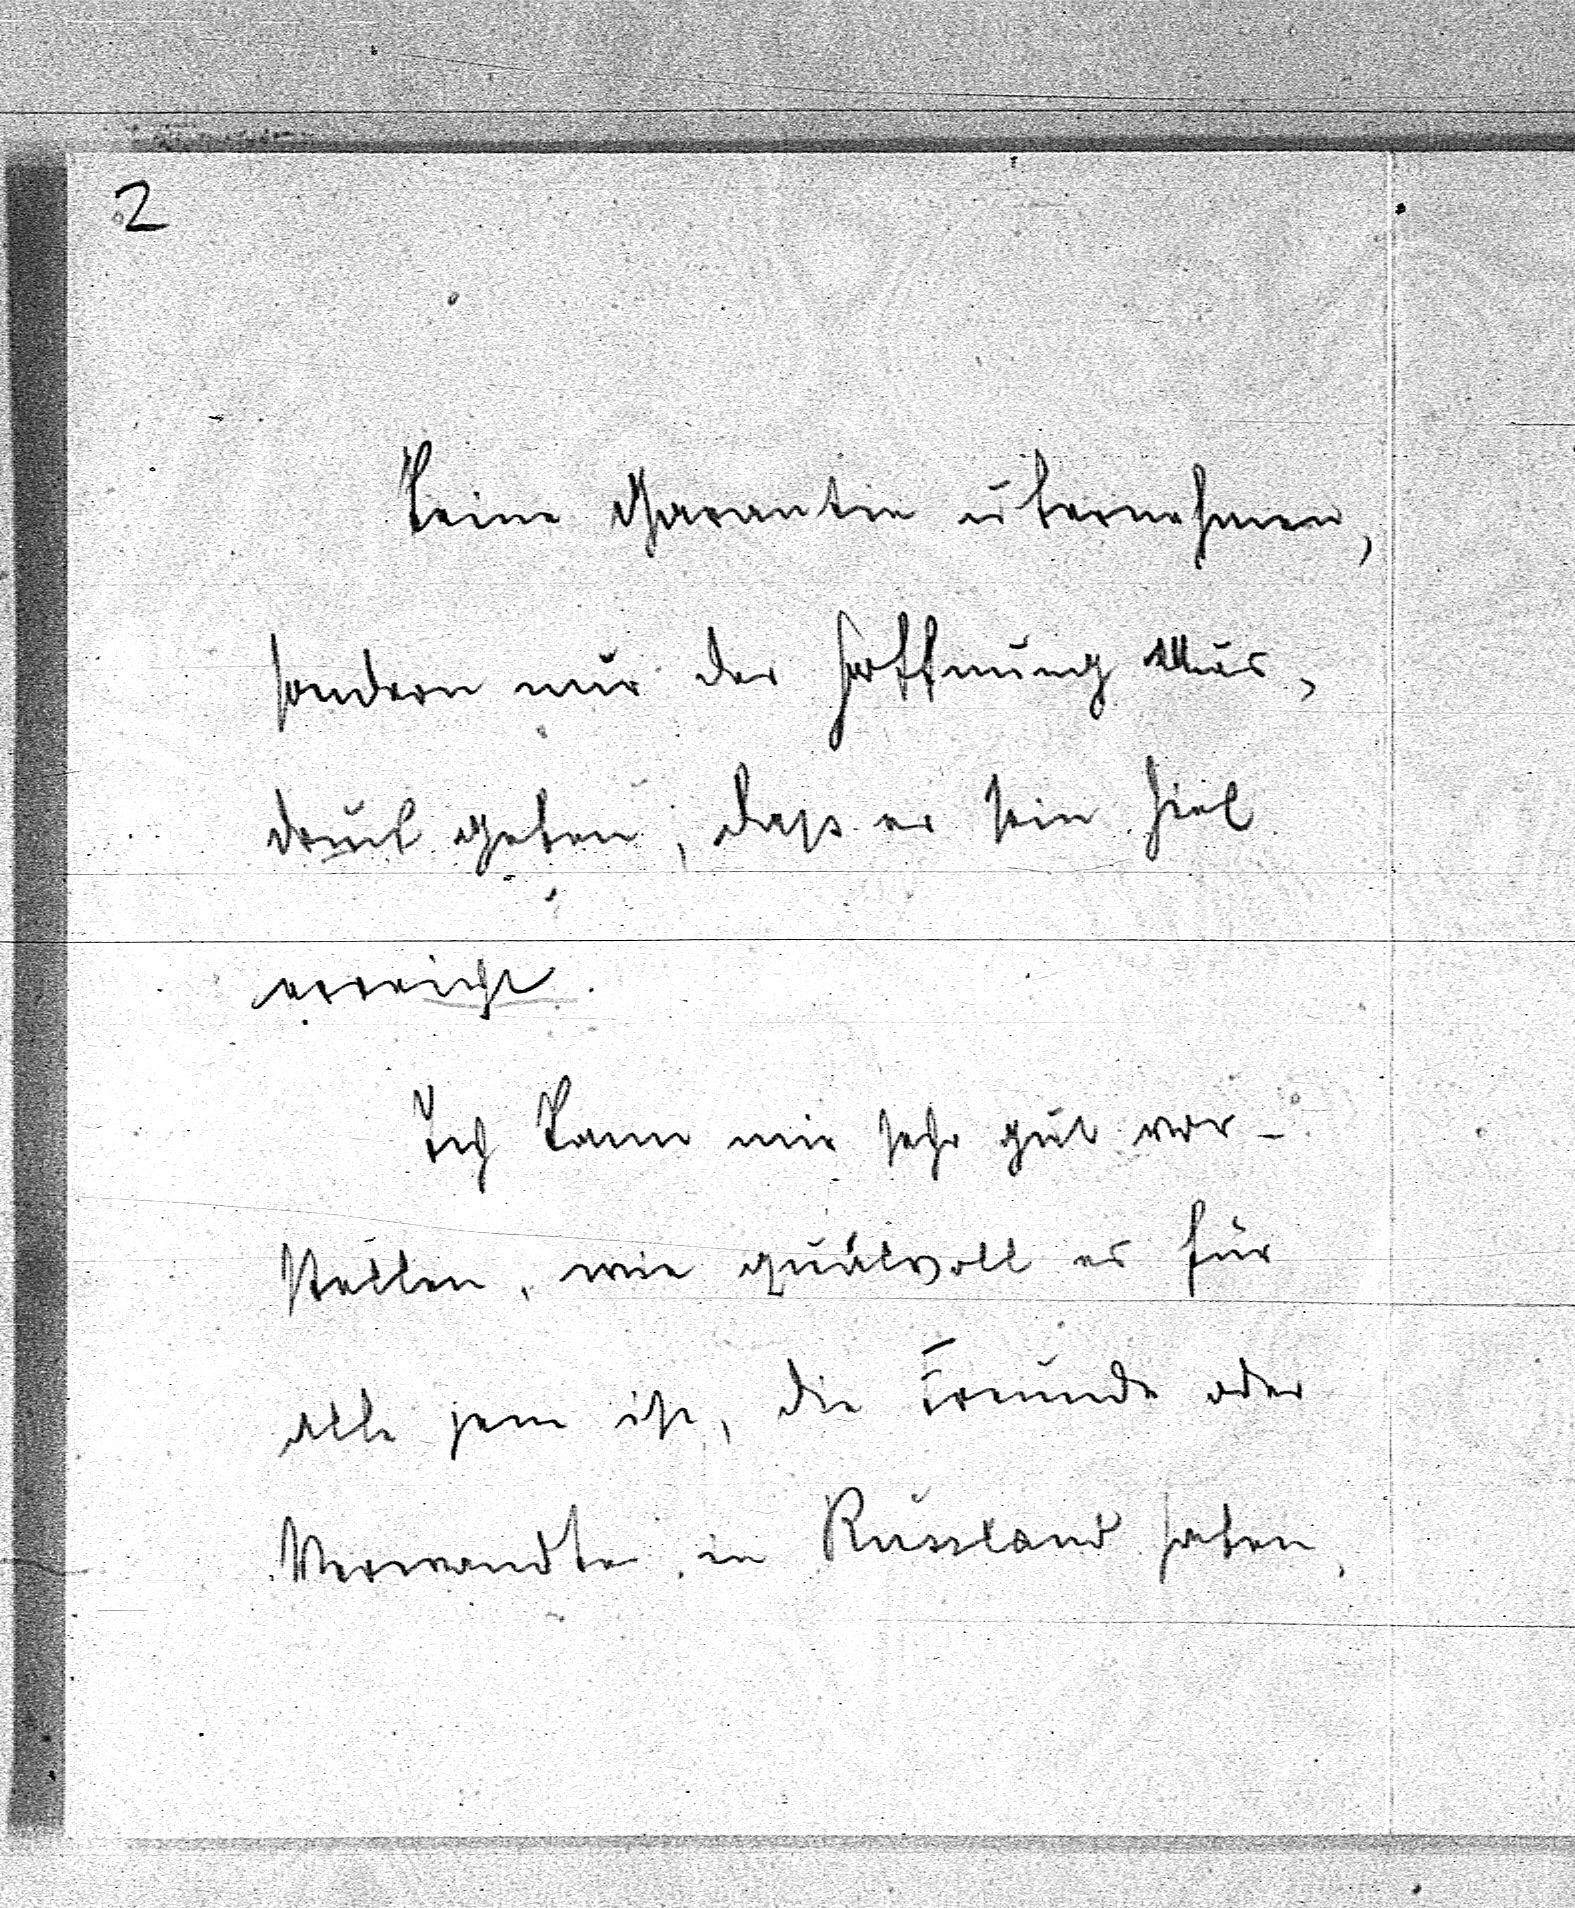 2
keine Garantie übernehmen,
sondern nur der Hoffnung Aus,
druck geben, dass er sein Ziel
erreicht.
Ich kann mir sehr gut vor-
stellen, wie qualvoll es für
alle jene ist, die Freunde oder
Verwandte in Russland haben,